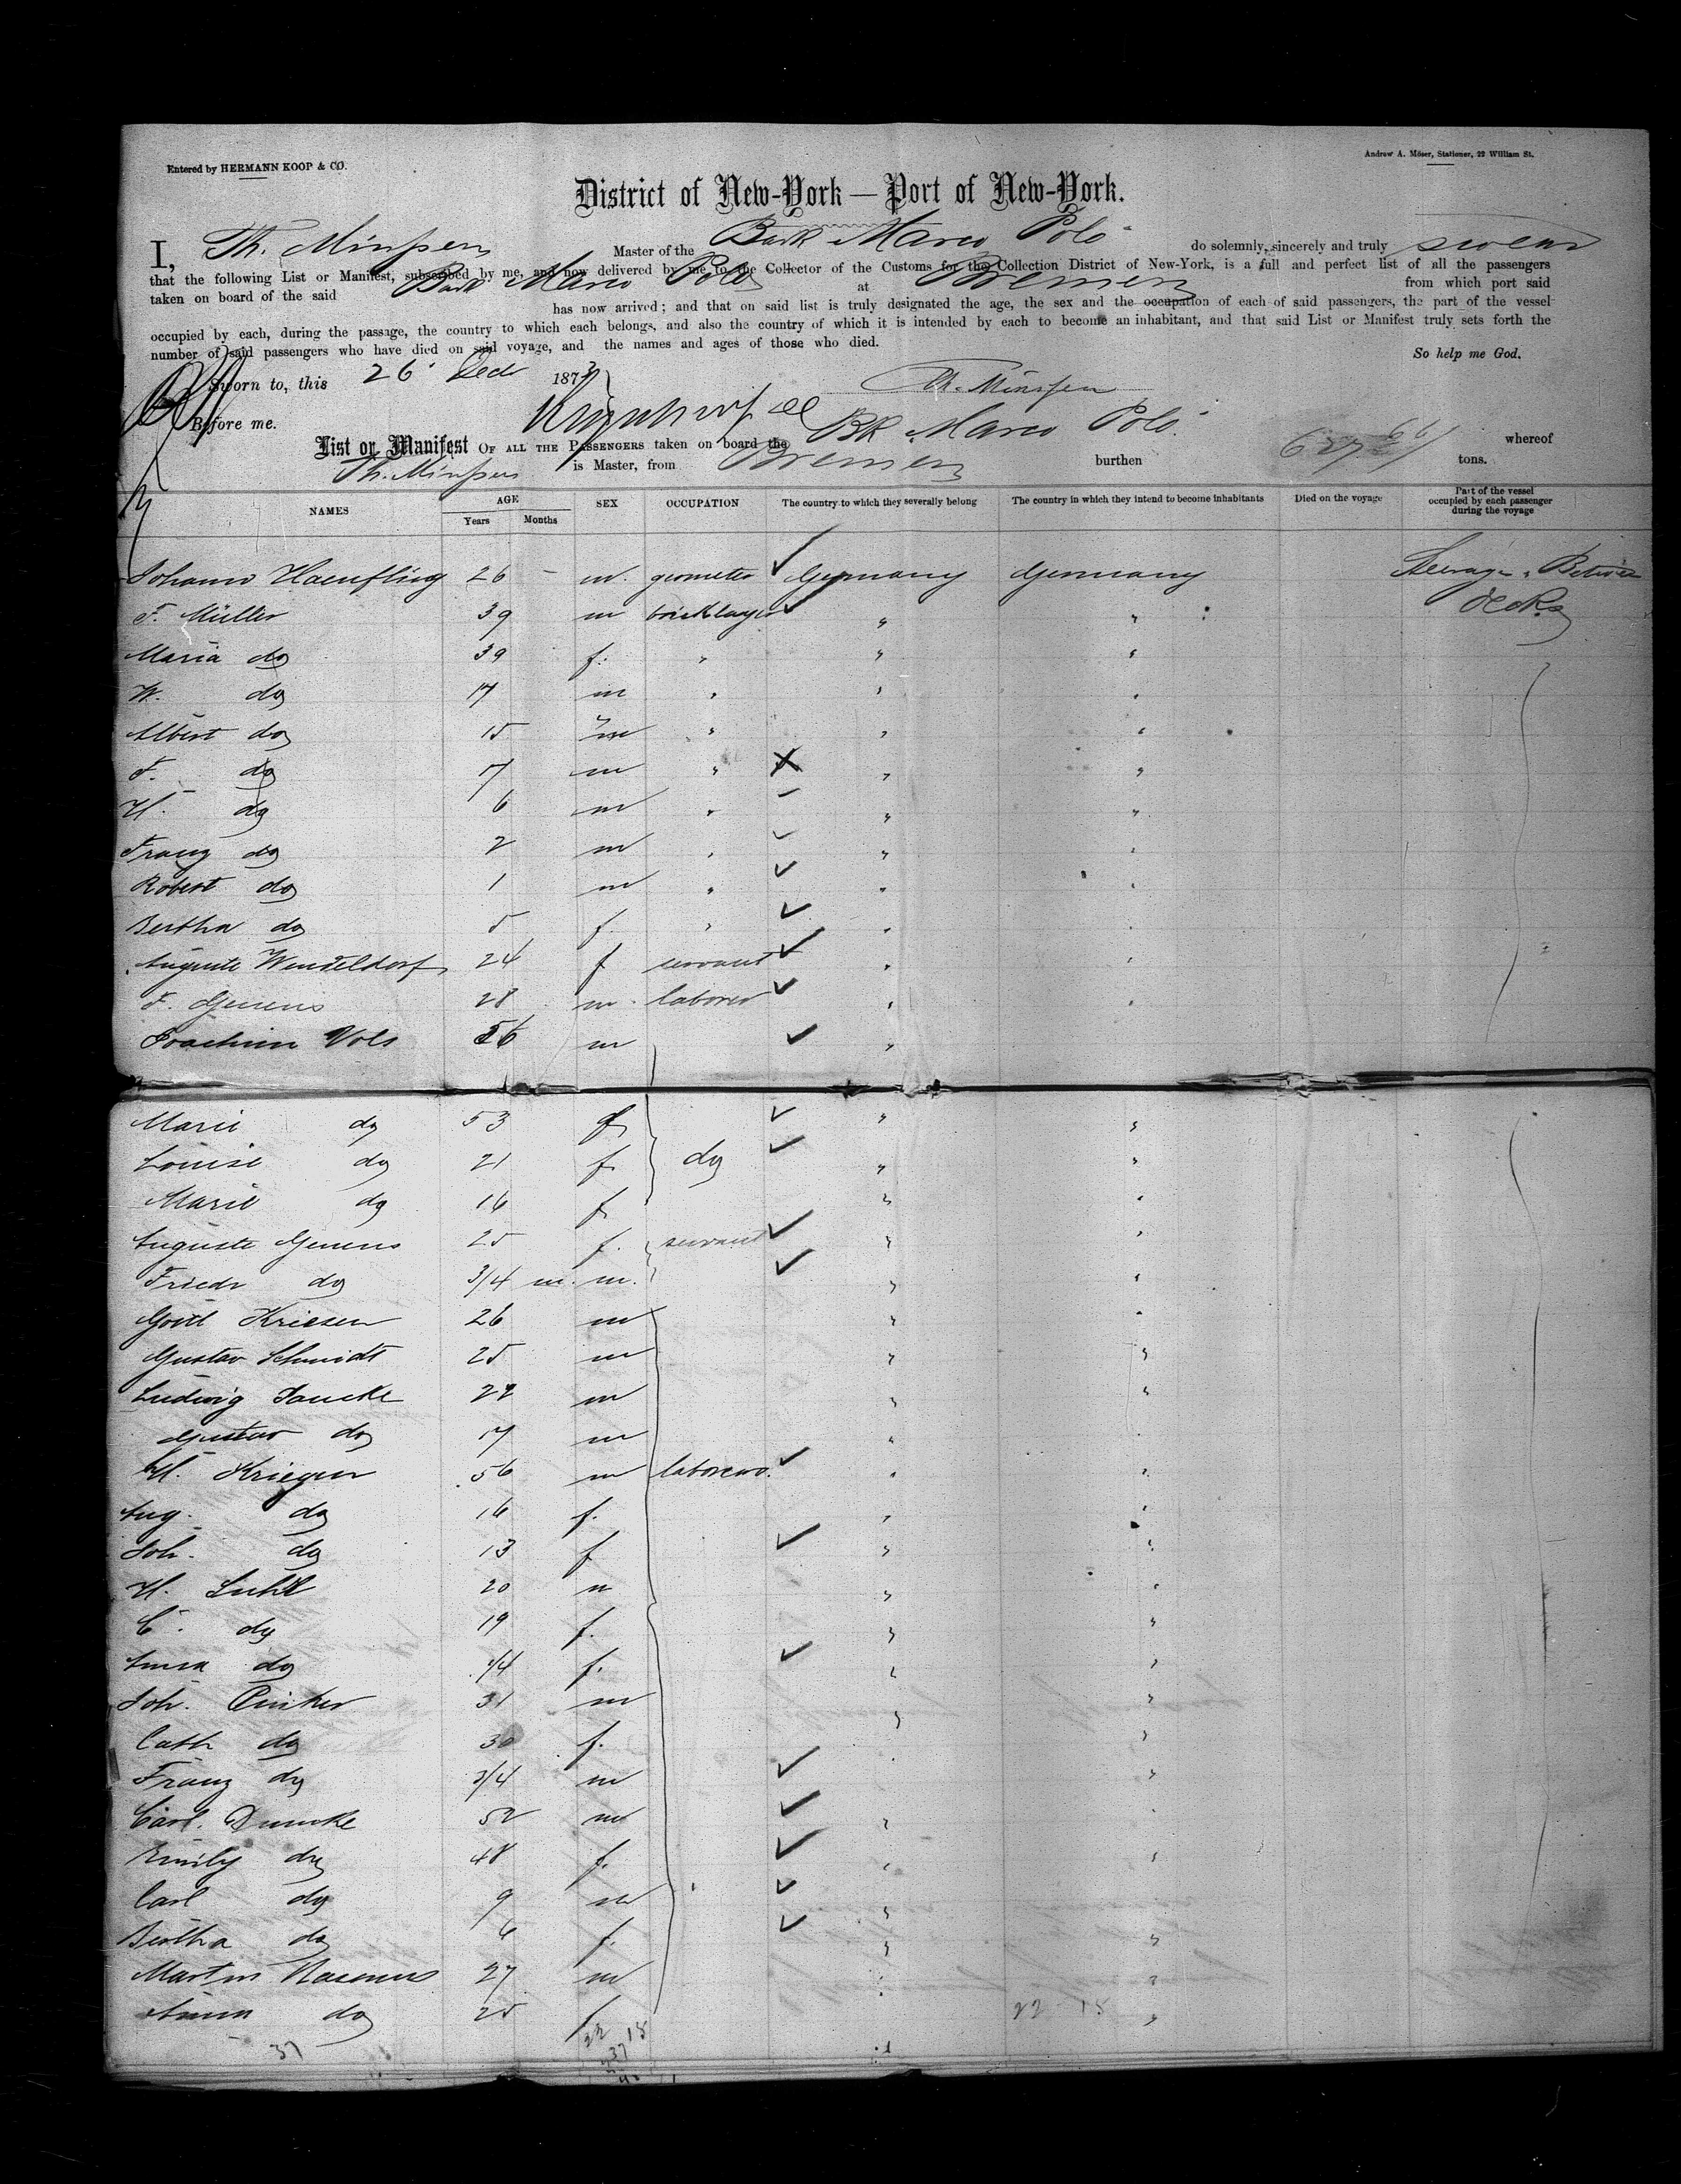 Entered by HERMANN KOOP & CO.
Andrew A. Möser, Stationer, 22 William St.
District of New-York — Port of New-York.
I, Th. Minssen Master of the Bark Marco Polo do solemnly, sincerely and truly swear
that the following List or Manifest, subscribed by me, and now delivered by me to the Collector of the Customs for the Collection District of New-York, is a full and perfect list of all the passengers
taken on board of the said Bark Marco Polo at Bremen from which port said
has now arrived; and that on said list is truly designated the age, the sex and the occupation of each of said passengers, the part of the vessel
occupied by each, during the passage, the country to which each belongs, and also the country of which it is intended by each to become an inhabitant, and that said List or Manifest truly sets forth the
number of said passengers who have died on said voyage, and the names and ages of those who died.
So help me God.
Sworn to, this 26 Dec 187
Th. Minssen
Before me.
List or Manifest OF ALL THE PASSENGERS taken on board the BK Marco Polo whereof
Th. Minssen is Master, from Bremen burthen tons.
NAMES AGE Years Months SEX OCCUPATION The country to which they severally belong The country in which they intend to become inhabitants Died on the voyage Part of the vessel occupied by each passenger during the voyage
Johann Haenfling 26 - m. geometer Germany Germany Steerage
F. Müller 39 m bricklayer " " decks
Maria do 39 f. " " "
W. do 17 m " " "
Albert do 15 m " " "
F. do 7 m " " "
H. do 6 m " " "
Franz do 2 m " " "
Robert do 1 m " " "
Bertha do 5 f. " " "
Auguste Wendeldorf 24 f servant " "
F. Gerrens 28 m laborer " "
Joachim Vols 56 m "
Marie do 53 f " "
Louise do 21 f do " "
Marie do 16 f " "
Auguste Gerrens 25 f. servant " "
Friedr do 3/4 m. m. " "
Gottl Kriesen 26 m " "
Gustav Schmidt 25 m " "
Ludwig Jancke 22 m " "
Gustav do 17 m " "
H. Kriegen 56 m laborers. " "
Aug. do 16 f. " "
Joh. do 13 f " "
H. Luhl 20 m " "
C. do 19 f. " "
Anna do 1/4 f. " "
Joh. Pinker 31 m " "
Cath do 30 f. "
Franz do 3/4 m "
Carl. Duncke 52 m "
Emily do 48 f. " "
Carl do 9 m "
Bertha do 6 f. " "
Martin Rasmus 27 m " "
Anna do 25 f 22 15 "
37 22 15
37